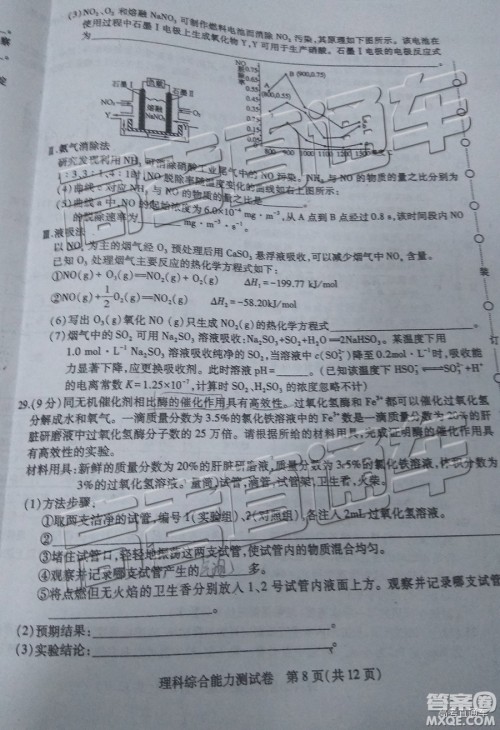 (3)NO₂、O₂ 和熔融 NaNO₃ 可制作燃料电池而消除 NO₂ 污染,其原理如下图所示。该电池在
使用过程中石墨Ⅰ电极上生成氧化物 Y,Y 可用于生产硝酸。石墨Ⅰ电极的电极反应式
为
石墨Ⅰ 石墨Ⅱ
NO₂ O₂
熔融
NaNO₃
A B (900,0.75)
(800,0.55)
Ⅱ.氨气消除法
研究发现利用 NH₃ 可消除硝酸工业尾气中的 NO 污染。NH₃ 与 NO 的物质的量之比分别为
1:3、3:1、4:1时,NO 脱除率随温度变化的曲线如右上图所示:
(4)曲线 c 对应 NH₃ 与 NO 的物质的量之比是
(5)曲线 a 中,NO 的起始浓度为 6.0×10⁻⁴ mg·m⁻³,从 A 点到 B 点经过 0.8 s,该时间段内 NO
的脱除速率为 mg·m⁻³·s⁻¹。
Ⅲ.液吸法
以 NO₂ 为主的烟气经 O₃ 预处理后用 CaSO₃ 悬浮液吸收,可以减少烟气中 NOₓ 含量。
已知 O₃ 处理烟气主要反应的热化学方程式如下:
①NO(g)+O₃(g)═NO₂(g)+O₂(g) ΔH₁=-199.77 kJ/mol
②NO(g)+1/2O₂(g)═NO₂(g) ΔH₂=-58.20kJ/mol
(6)写出 O₃(g)氧化 NO (g)只生成 NO₂(g)的热化学方程式
(7)烟气中的 SO₂ 可用 Na₂SO₃ 溶液吸收:Na₂SO₃+SO₂+H₂O═2NaHSO₃。某温度下用
1.0 mol·L⁻¹ Na₂SO₃ 溶液吸收纯净的 SO₂,当溶液中 c(SO₃²⁻)降至 0.2mol·L⁻¹时,吸收
能力显著下降,应更换吸收剂。此时溶液 pH= 。(已知该温度下 HSO₃⁻ SO₃²⁻+H⁺
的电离常数 K=1.25×10⁻⁷,计算时 SO₂、H₂SO₃ 的浓度忽略不计)
29.(9分)同无机催化剂相比酶的催化作用具有高效性。过氧化氢酶和 Fe³⁺ 都可以催化过氧化氢
分解成水和氧气。一滴质量分数为 3.5%的氯化铁溶液中的 Fe³⁺数是一滴质量分数为 20%的肝
脏研磨液中过氧化氢酶分子数的 25 万倍。请根据所给的材料用具,完成证明酶的催化作用具有
高效性的实验。
材料用具:新鲜的质量分数为20%的肝脏研磨液,质量分数为3.5%的氯化铁溶液,体积分数为
3%的过氧化氢溶液。量筒,试管,滴管,试管架,卫生香,火柴。
(1)方法步骤:
①取两支洁净的试管,编号1(实验组)、2(对照组),各注入 2mL 过氧化氢溶液。
②
③堵住试管口,轻轻地振荡这两支试管,使试管内的物质混合均匀。
④观察并记录哪支试管产生的 多。
⑤将点燃但无火焰的卫生香分别放入1、2号试管内液面上方。观察并记录哪支试管
(2)预期结果:
(3)实验结论:
理科综合能力测试卷 第 8 页(共 12 页)
装
订
高考直通车
答案圈
MXQE.COM